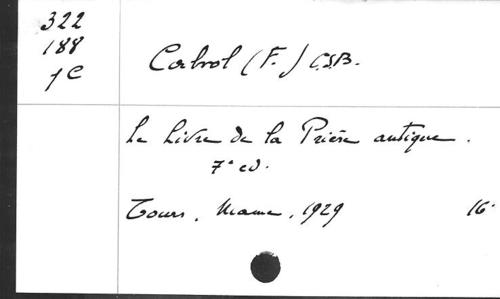 322
188
1C
Cabrol (F.) O.S.B.
Le Livre de la Prière antique.
7e ed.
Tours, Mame, 1929 16°